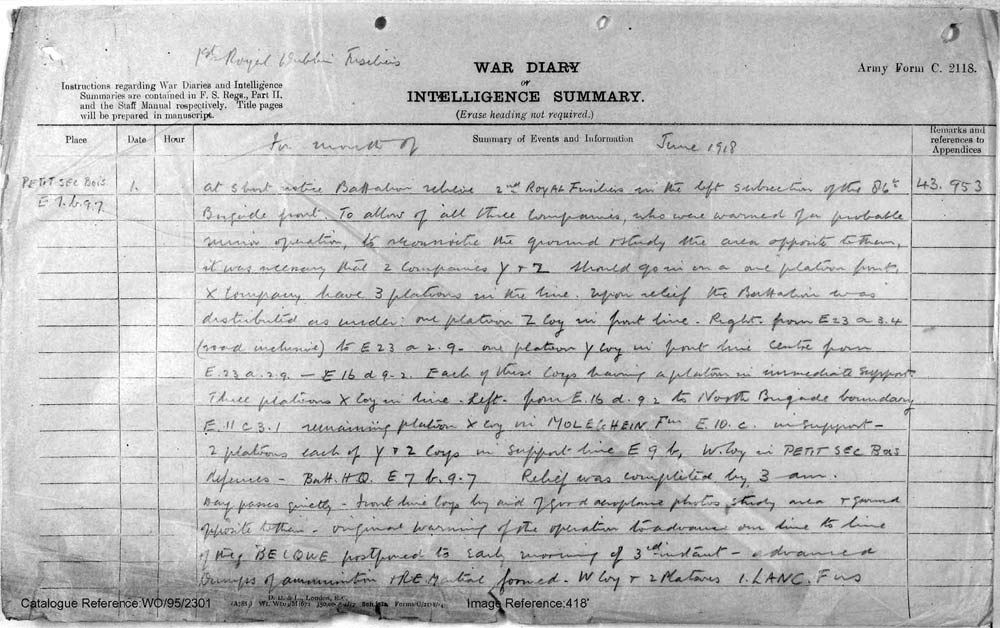 1st Royal Dublin Fusiliers
WAR DIARY
or
INTELLIGENCE SUMMARY.
(Erase heading not required.)
Army Form C. 2118.
Instructions regarding War Diaries and Intelligence
Summaries are contained in F. S. Regs., Part II.
and the Staff Manual respectively. Title pages
will be prepared in manuscript.
Place
Date
Hour
Summary of Events and Information
Remarks and
references to
Appendices
For month of June 1918
PETIT SEC BOIS
E 7.b.9.7
1.
43.953
at short notice Battalion relieve 2nd Royal Fusiliers in the left subsection of the 86th
Brigade front. To allow of all three companies, who were warned of a probable
minor operation, to reconnoitre the ground & study the area opposite to them,
it was necessary that 2 Companies Y & Z should go in on a one platoon front,
X Company have 3 platoons in the line. Upon relief the Battalion was
distributed as under: one platoon Z Coy in front line - Right - from E 23 a 3.4
(road inclusive) to E 23 a 2.9 - one platoon Y Coy in front line Centre from
E.23.a.2.9. - E 16 d 9.2. Each of these Coys having a platoon in immediate support.
Three platoons X Coy in line - Left - from E.16.d.9.2 to North Brigade boundary
E.11 c 3.1 remaining platoon X Coy in Fm E.10.c. in support -
2 platoons each of Y & Z Coys in support line E 9 b, W. Coy in PETIT SEC BOIS
defences - Batt. HQ. E 7 b.9.7 Relief was completed by 3 am.
Day passes quietly - front line Coys by aid of good aeroplane photos study area & ground
opposite to them - original warning of the operation to advance our line to line
of BECQUE postponed to early morning of 3rd instant - advanced
Dumps of ammunition & RE Material formed - W Coy & 2 Platoons 1. LANC. Fus
D. D. & L., London, E.C.
Forms/C/2118/14
Catalogue Reference:WO/95/2301
Image Reference:418'